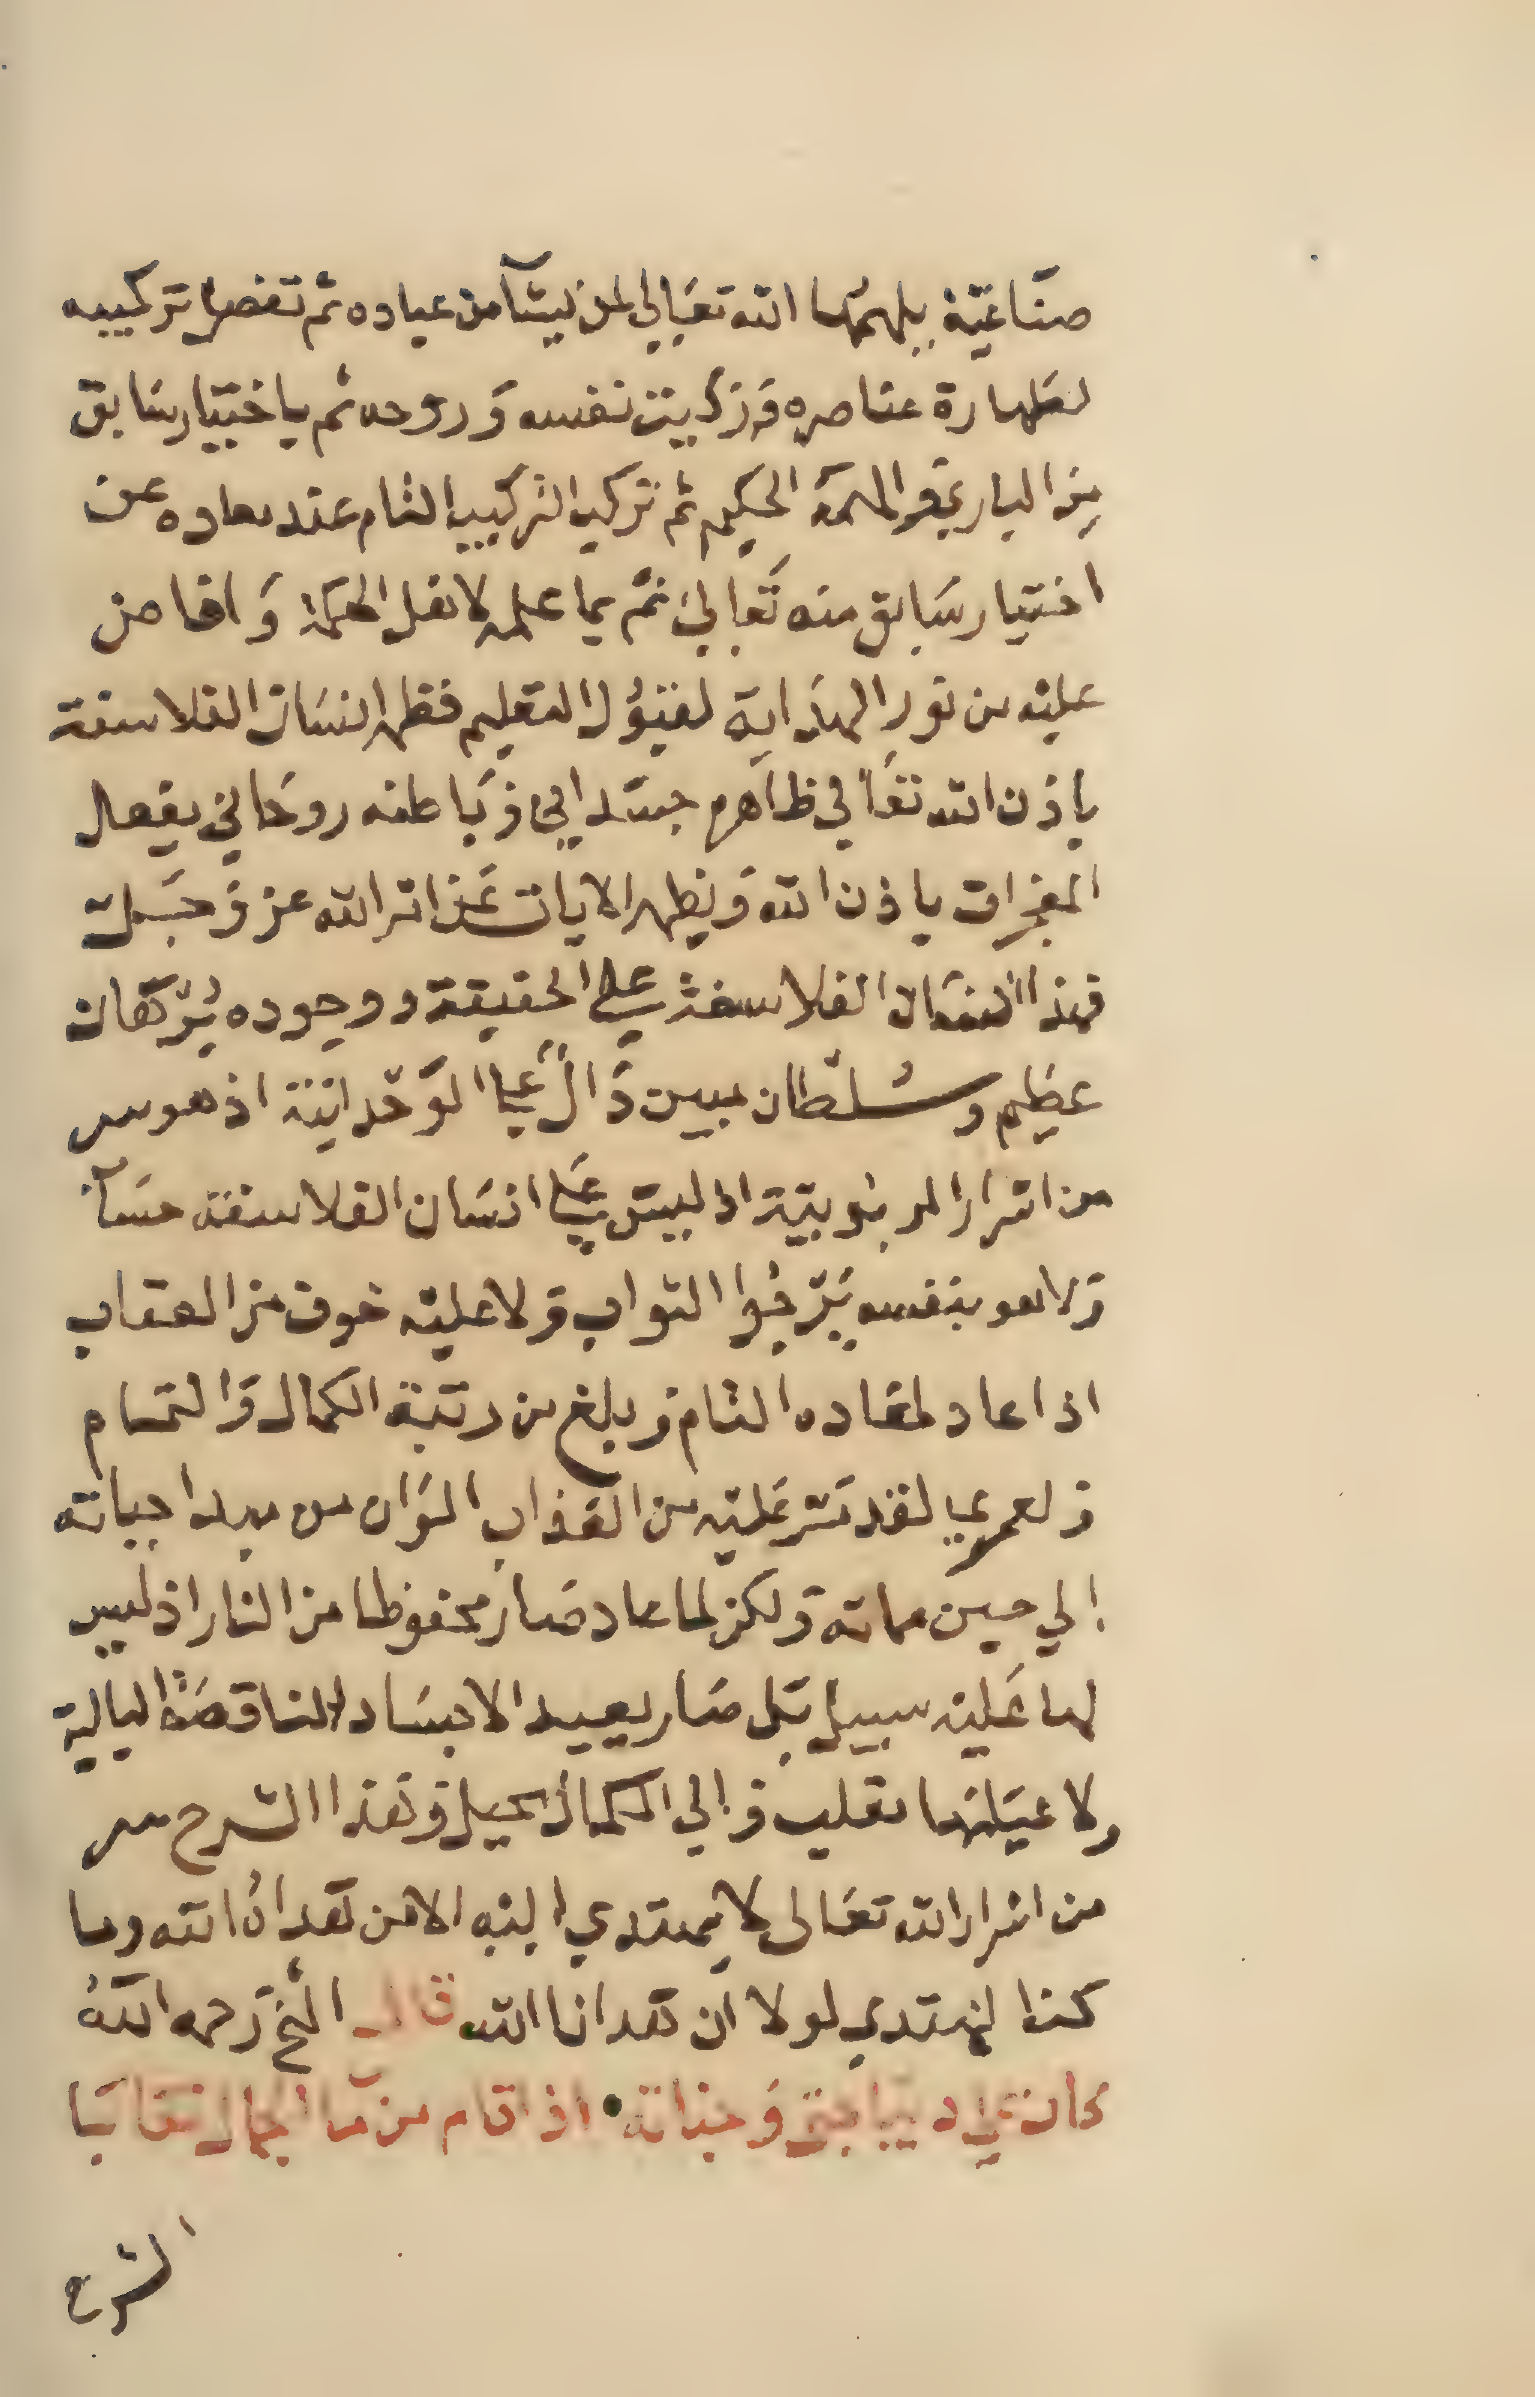 صناعية يلهمها الله تعالي لمن يشآ من عباده ثم تفصل تركيبه
لطهارة عناصره وتزكيت نفسه وروحه ثم باختيار سابق
من الباري والهمة الحكيم ثم تركب التركيب التام عند معاده عن
اختيار سابق منه تعالي ثم بما علمه لاهل الحكمة وافاض
عليه من نور الهداية لقبول التعليم فظهر انسان الفلاسفة
باذن الله تعالي ظاهره جسداني وباطنه روحاني يفعل
المعجزات باذن الله ويظهر الايات عن امر الله عز وجل
فهذا انسان الفلاسفة علي الحقيقة ووجوده برهان
عظيم وسلطان مبين دال علي الوحدانية اذ هو سر
من اسرار الربوبية اذ ليس علي انسان الفلاسفة حساب
ولا هو بنفسه يرجوا الثواب ولا عليه خوف من العقاب
اذا عاد لمعاده التام وبلغ من رتبة الكمال والتمام
ولعمري لقد مر عليه من العذاب الوان من مبدا حياته
الي حين مماته ولكن لما عاد صار محفوظا من النار اذ ليس
لها عليه سبيل بل صار يعيد الاجساد الناقصة البالية
ولا عيانها تقليب والي الكمال يحيل وهذا الشرح سر
من اسرار الله تعالى لا يهتدي اليه الا من هداه الله وما
كنا لنهتدي لولا ان هدانا الله قال الشيخ رحمه الله
كان علي ديباجتي وجناته اذا قام من ما الجمال سحائبا
الشرح